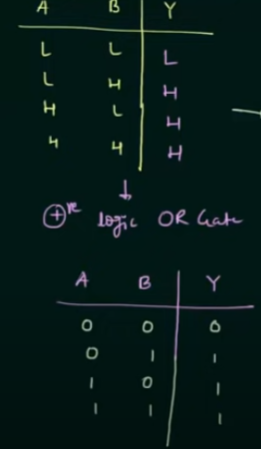 A B Y
L L L
L H H
H L H
H H H
↓
⊕ve logic OR Gate
A B Y
0 0 0
0 1 1
1 0 1
1 1 1